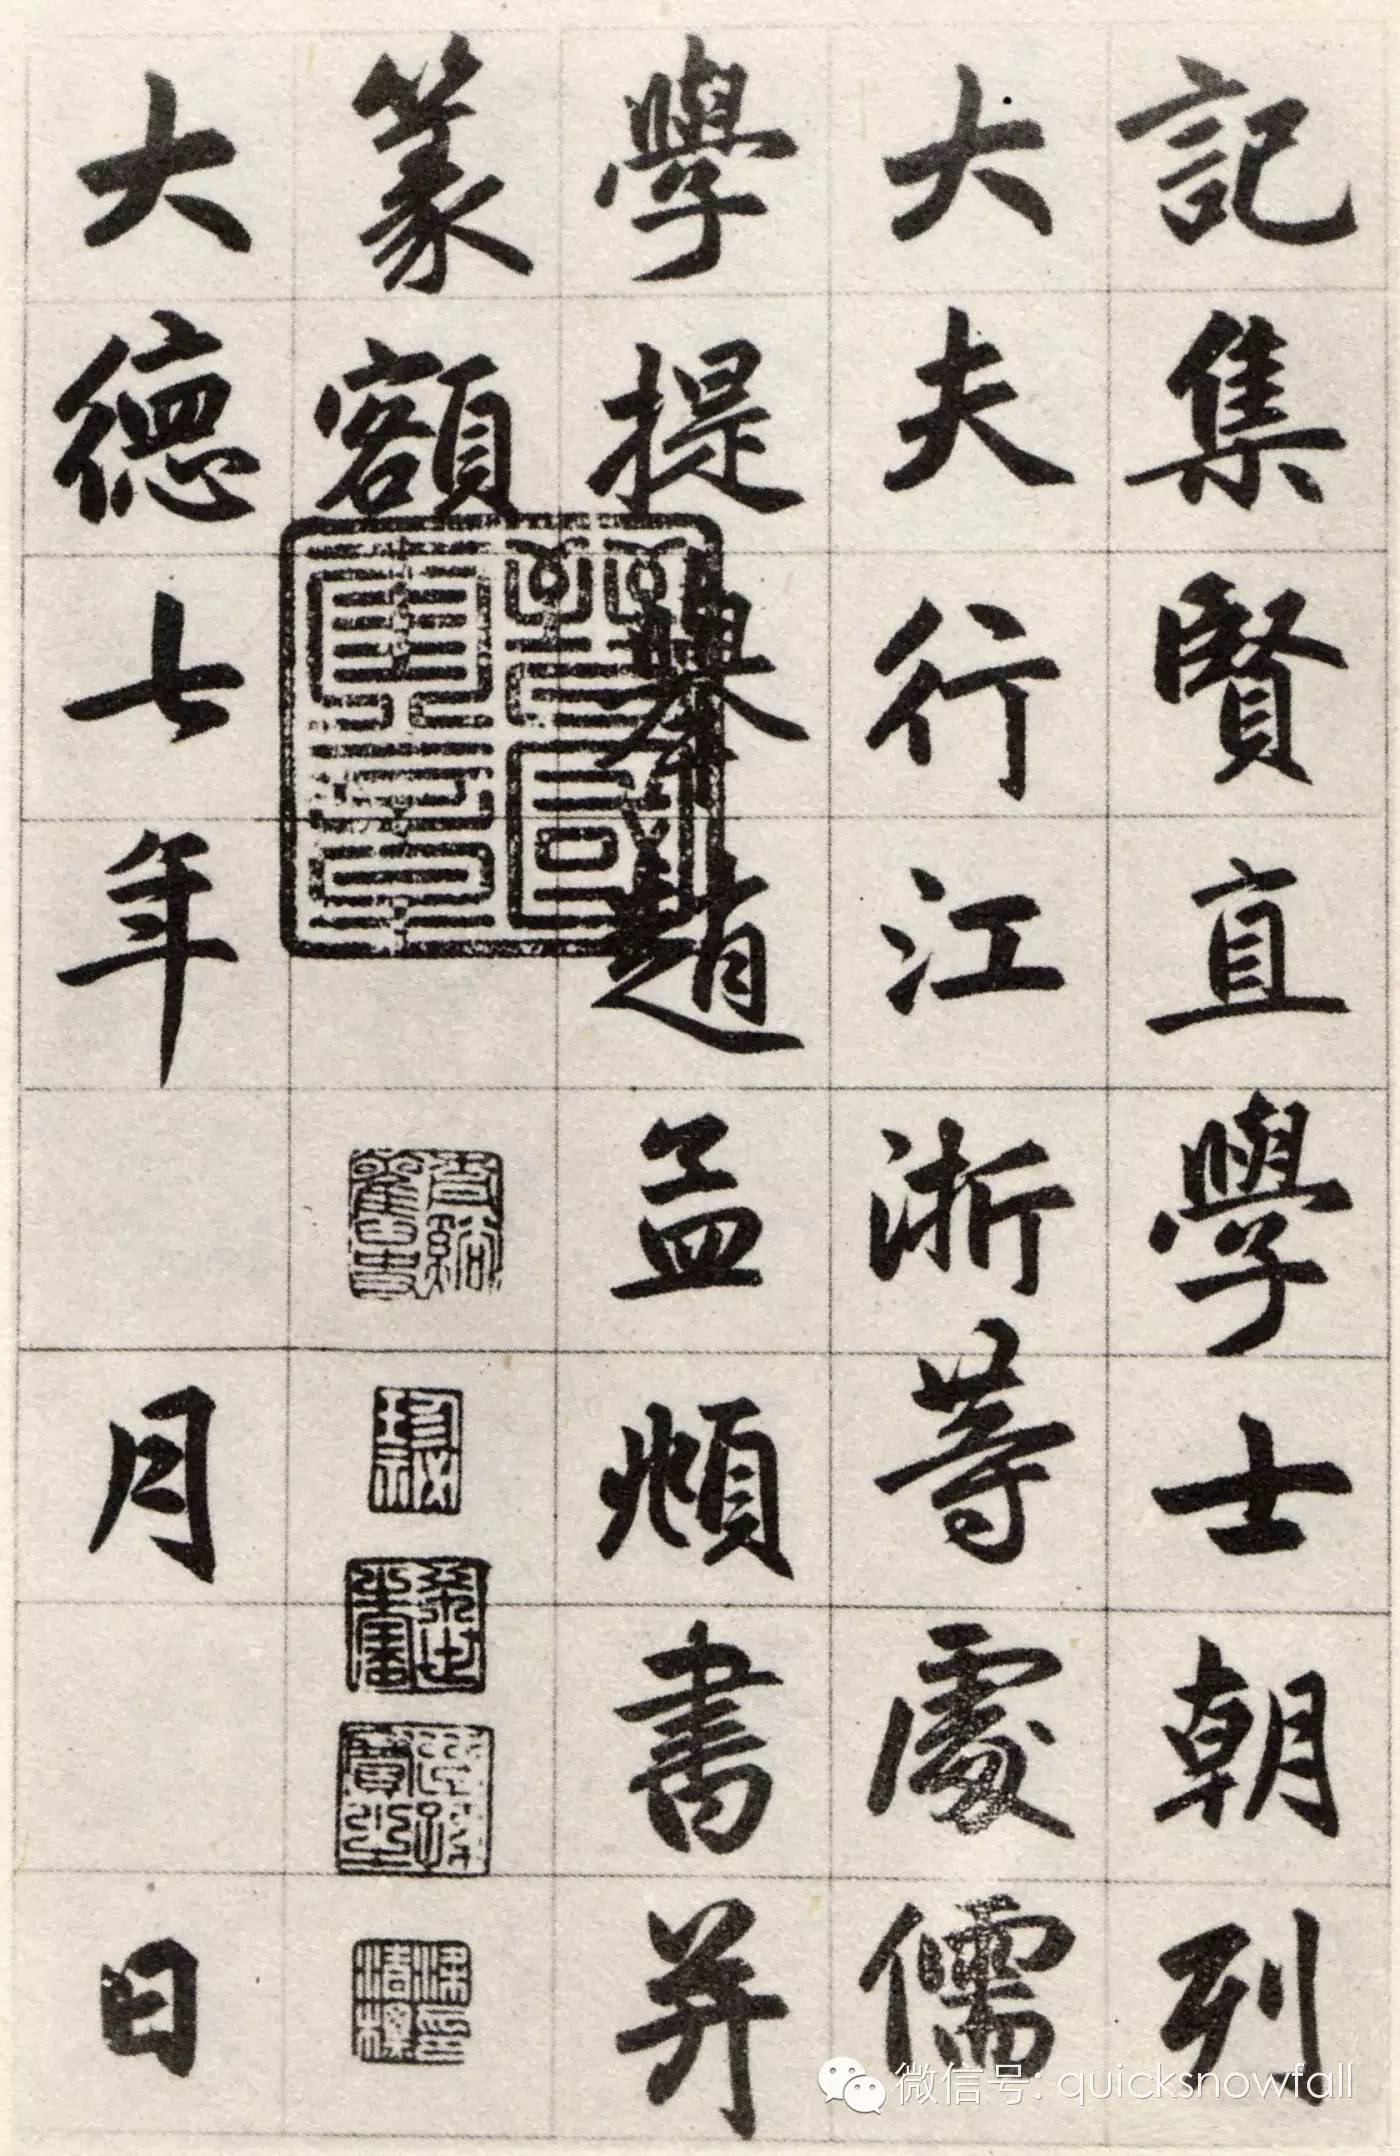 記集賢直學士朝列
大夫行江浙等處儒
學提舉趙孟頫書并
篆額
大德七年 月 日
微信号: quicksnowfall